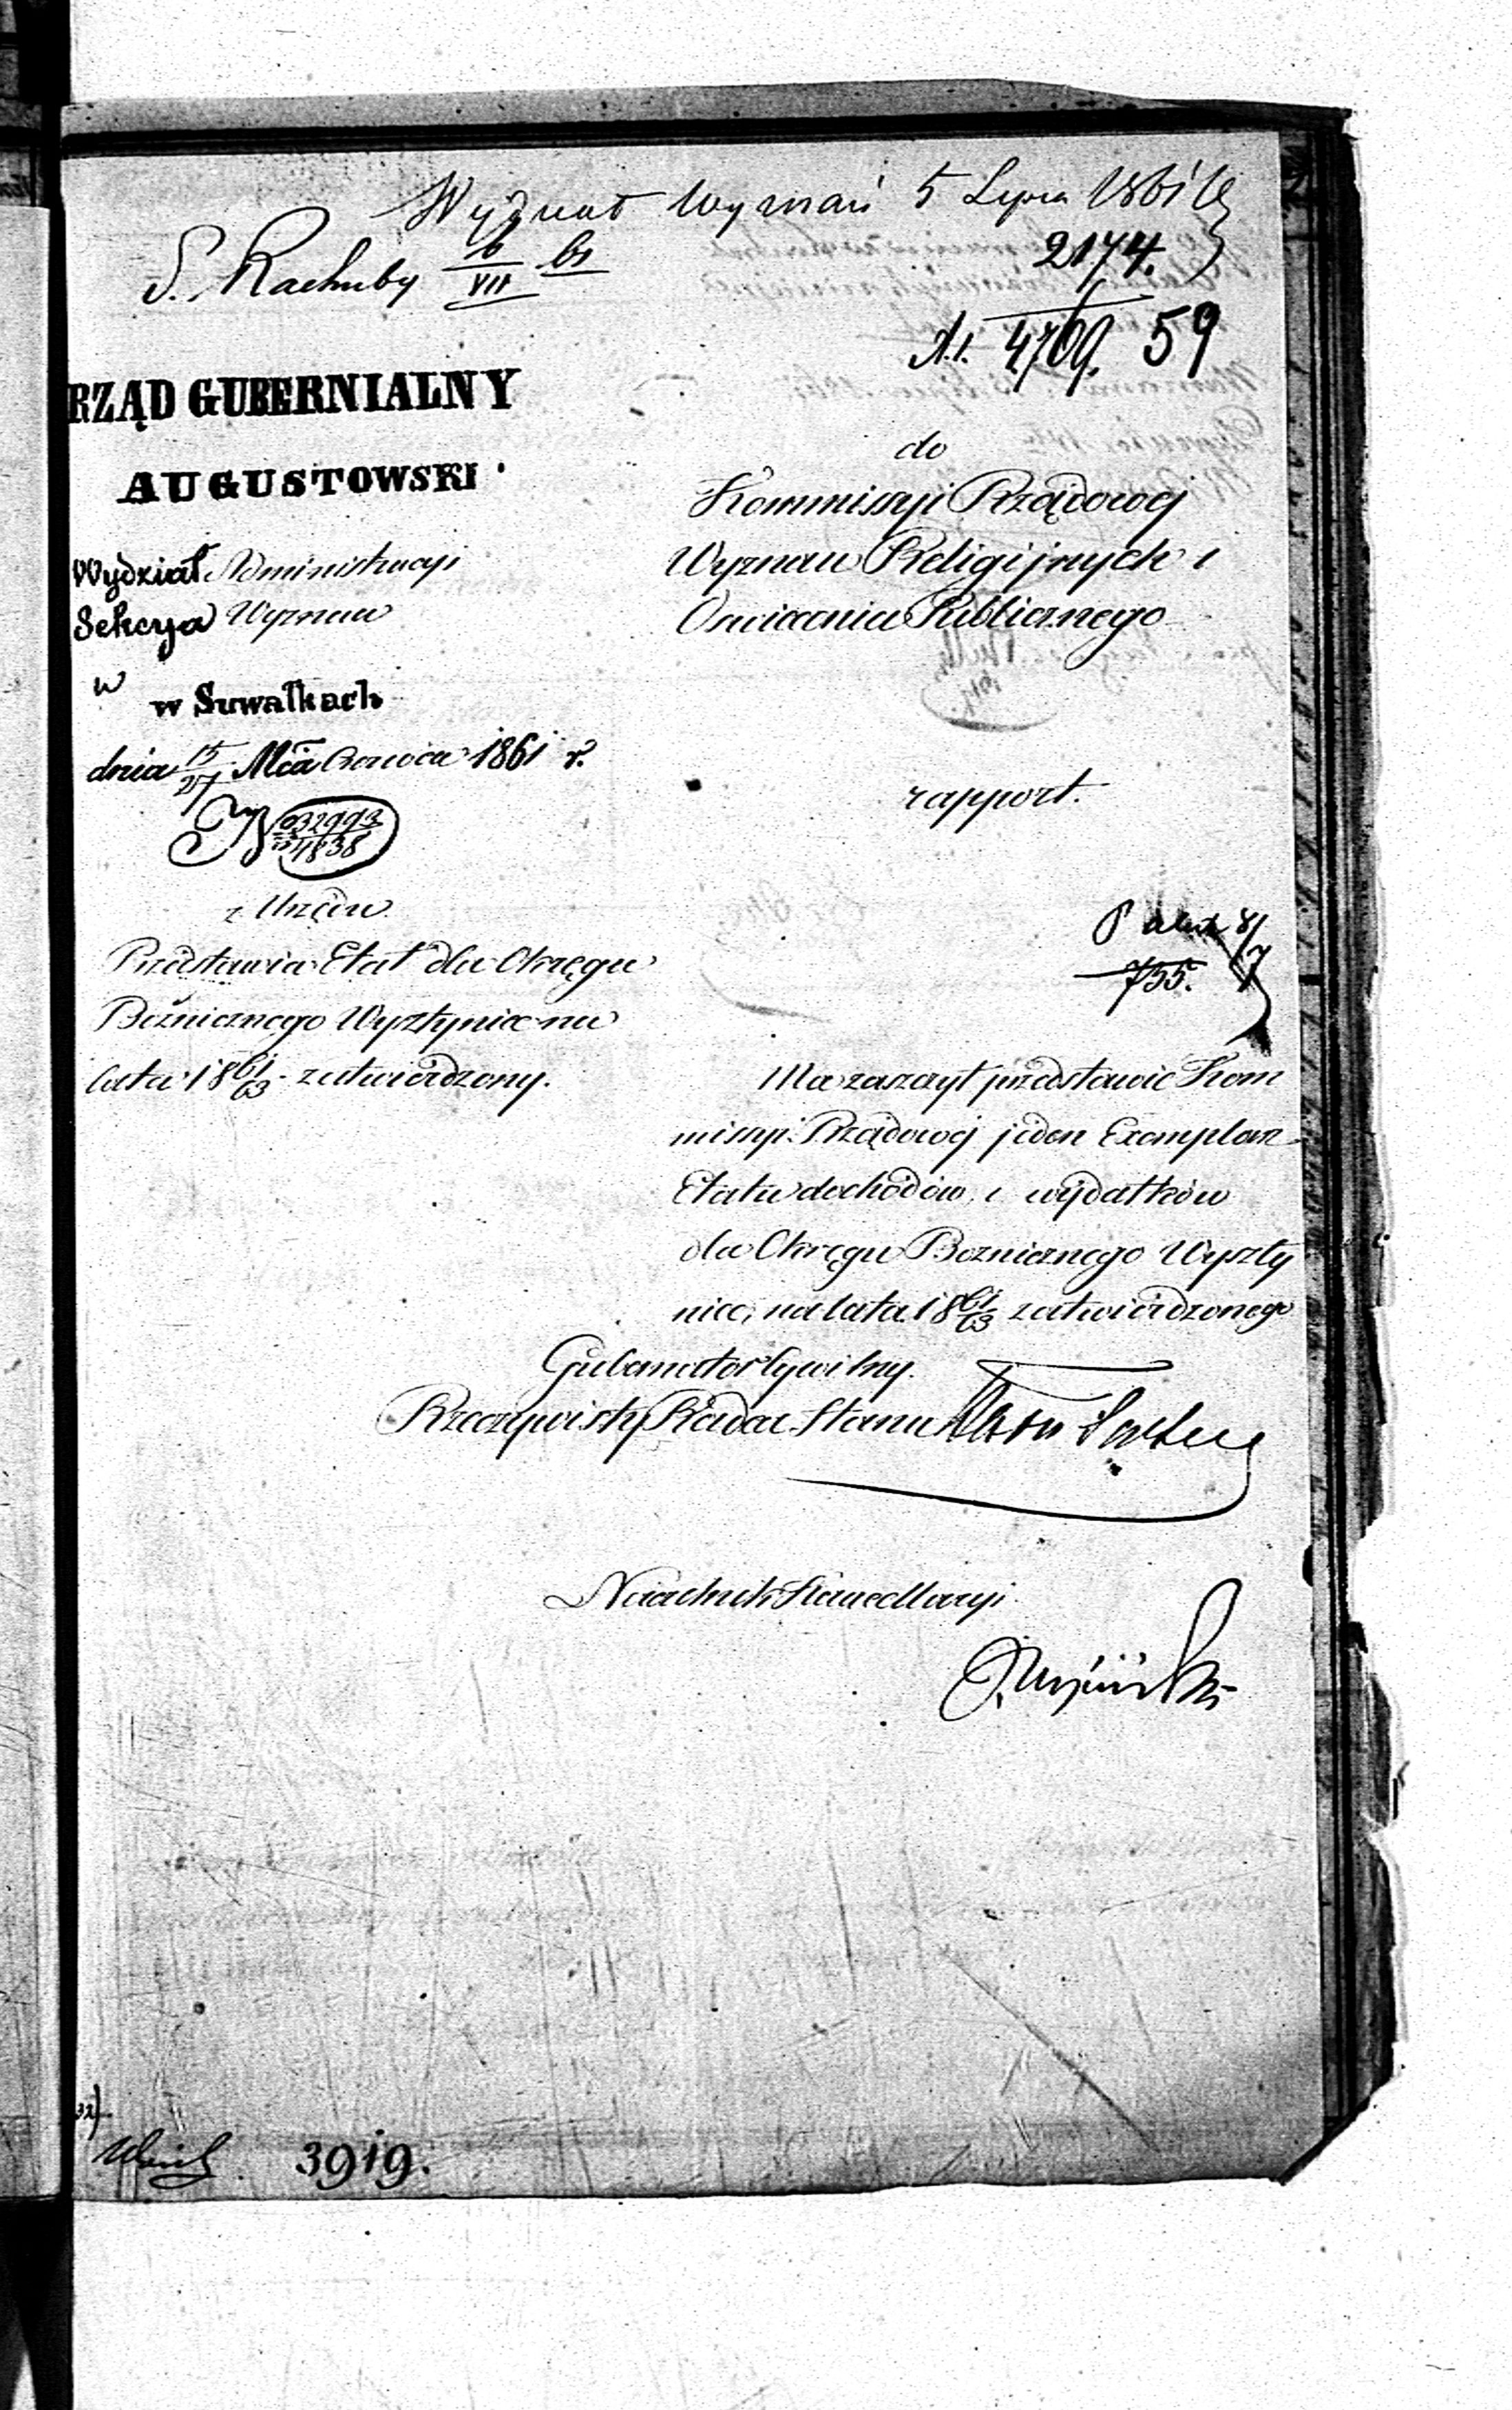 Wydział Wyznań 5 Lipca 1861 r.
S. Rachuby 6/VII 61
2174.
4709. 59
RZĄD GUBERNIALNY
AUGUSTOWSKI
Wydział Administracyi
Sekcya Wyznań
w
w Suwałkach
dnia 15/27 Mca Czerwca 1861 r.
N 32993/4838
z Urzędu
Przedstawia Etat dla Okręgu
Bóżnicznego Wysztyniec na
lata 1861/63 zatwierdzony.
do
Kommissyi Rządowej
Wyznań Religijnych i
Oświecenia Publicznego
rapport.
8/7
755.
Ma zaszczyt przedstawić Kom
missyi Rządowej jeden Exemplarz
Etatu dochodów i wydatków
dla Okręgu Bożnicznego Wyszty
niec, na lata 1861/63 zatwierdzonego
Gubernator Cywilny.
Rzeczywisty Radca Stanu
Naczelnik Kancellaryi
32)
3919.